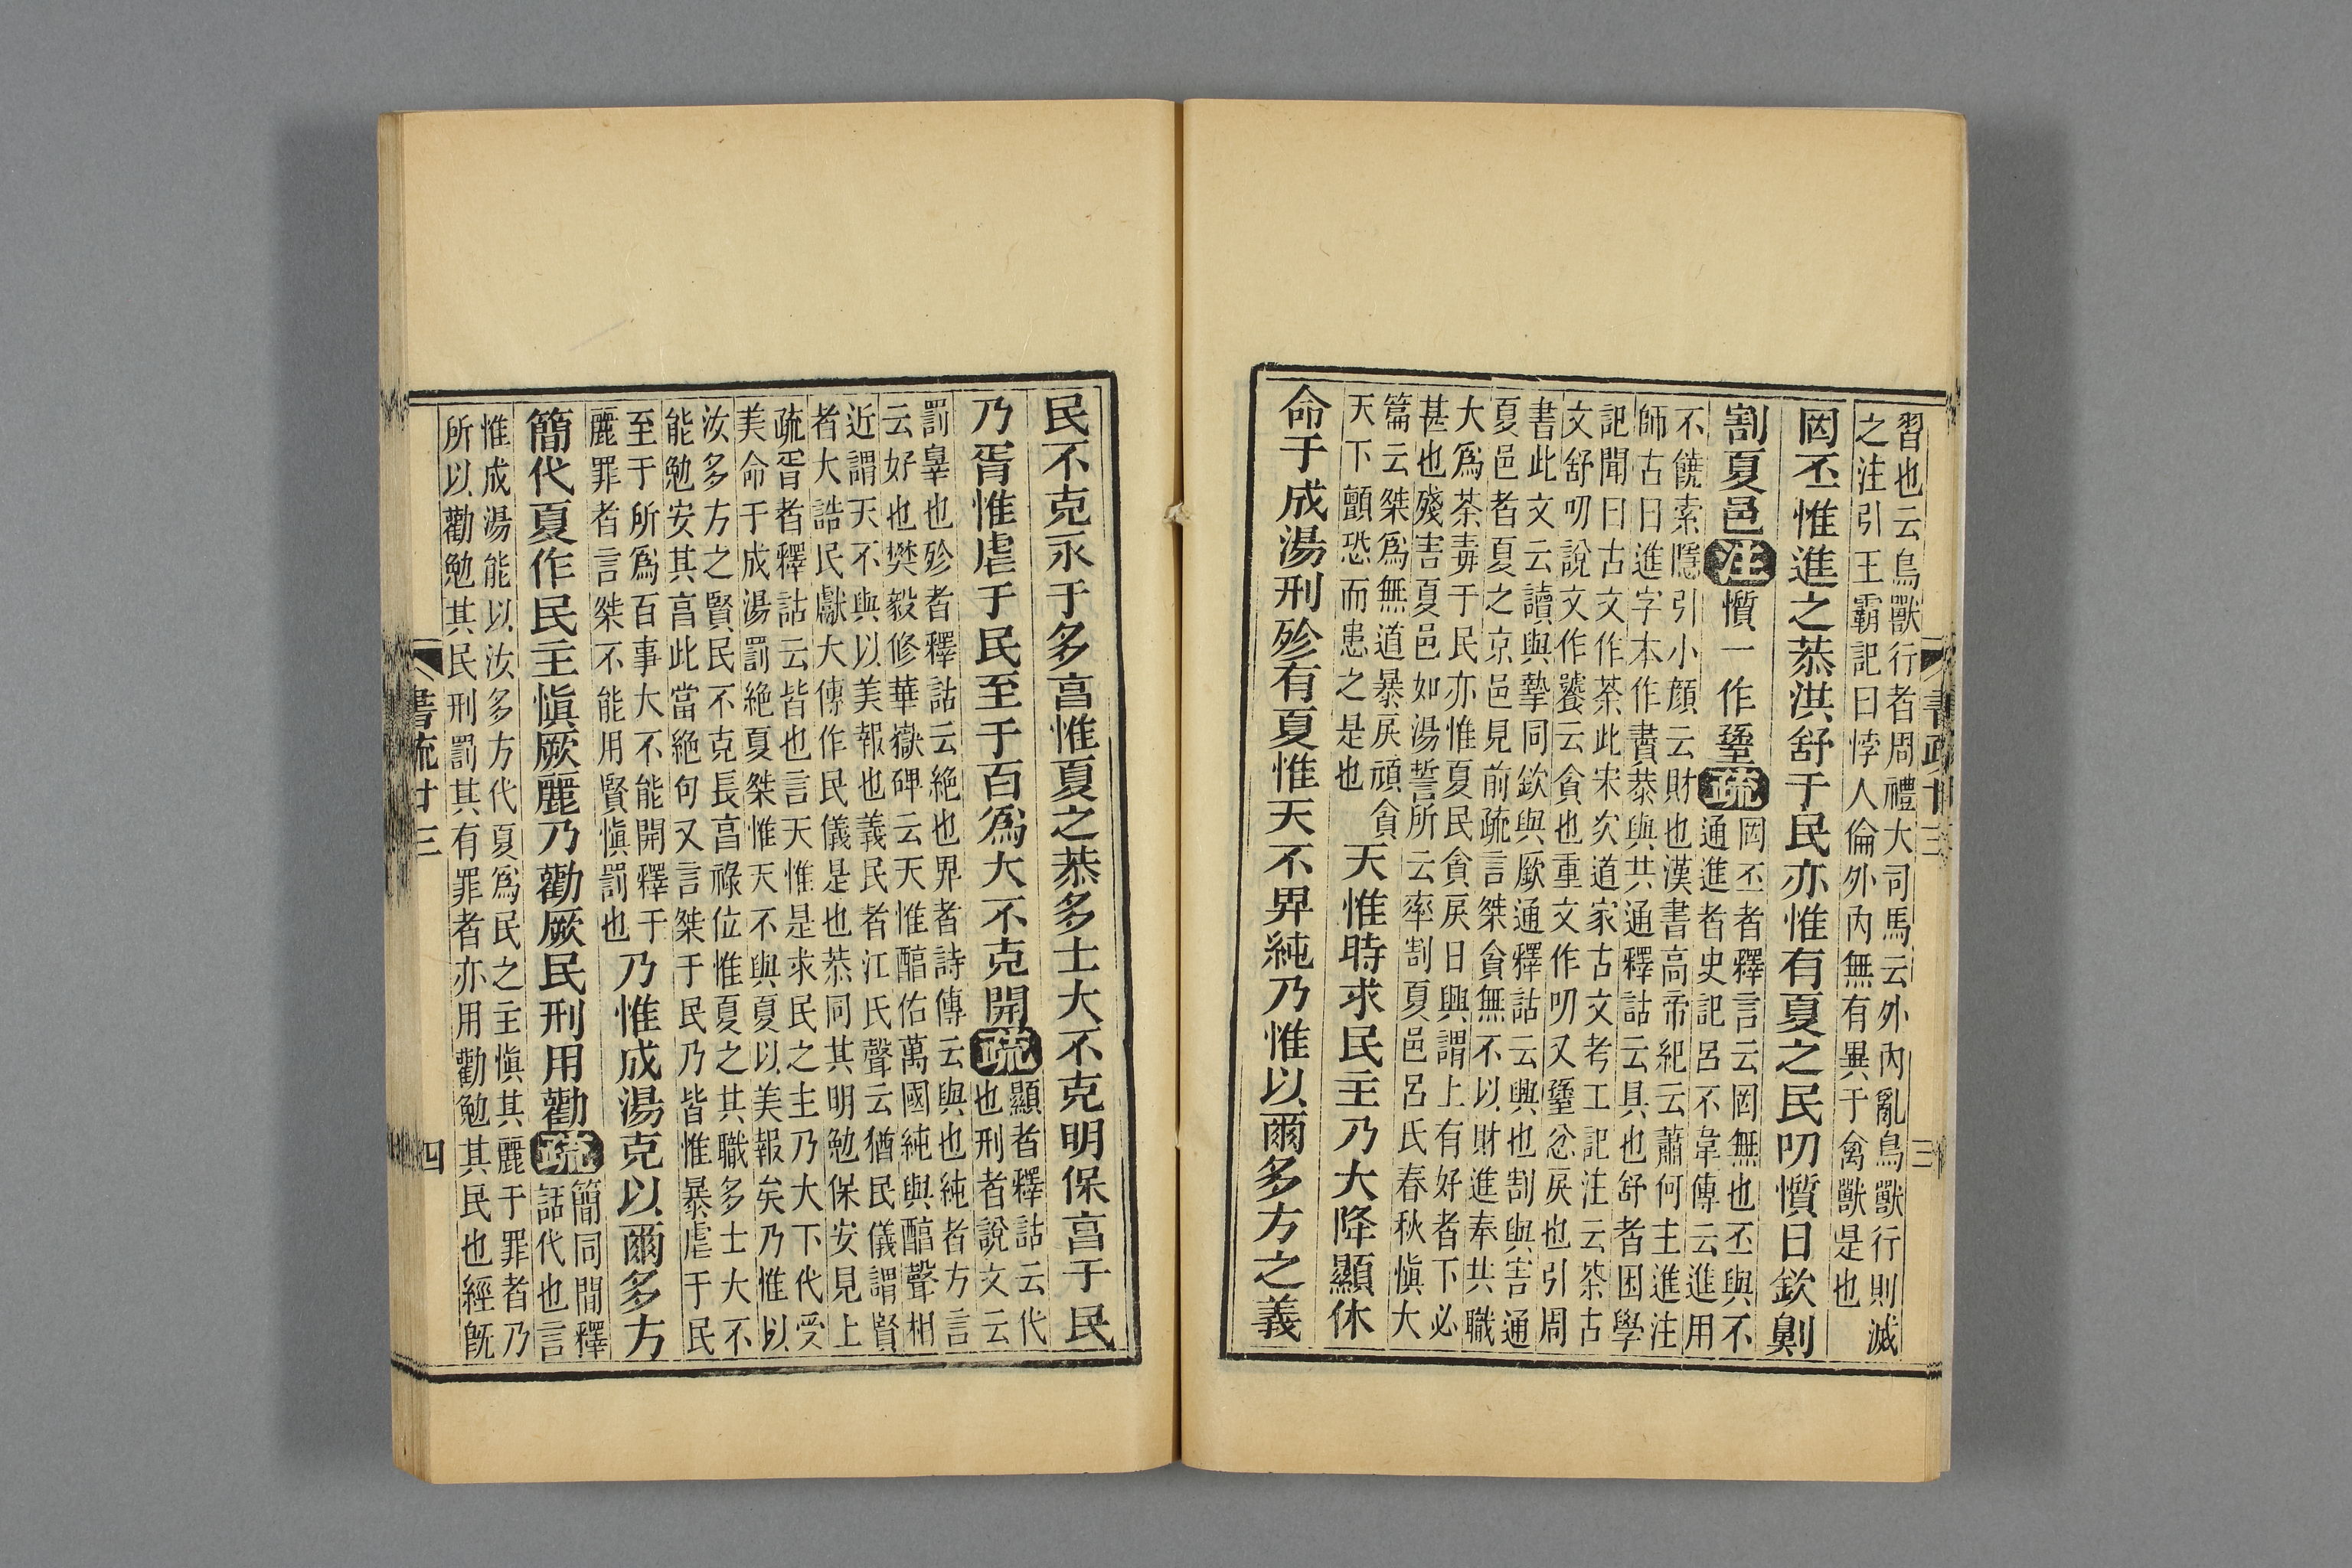 習也云鳥獸行者周禮大司馬云外內亂鳥獸行則滅
之注引王霸記曰悖人倫外內無有異于禽獸是也
罔丕惟進之恭洪舒于民亦惟有夏之民叨懫日欽劓
割夏邑注懫一作𡠗疏
罔丕者釋言云罔無也丕與不
通進者史記呂不韋傳云進用
不饒索隱引小顏云財也漢書高帝紀云蕭何主進注
師古曰進字本作賮恭與共通釋詁云具也舒者困學
記聞曰古文作荼此宋次道家古文考工記注云荼古
文舒叨說文作饕云貪也重文作叨又𡠗忿戾也引周
書此文云讀與摯同欽與廞通釋詁云興也割與害通
夏邑者夏之京邑見前疏言桀貪無不以財進奉共職
大爲荼毒于民亦惟夏民貪戾日興謂上有好者下必
甚也殘害夏邑如湯誓所云率割夏邑呂氏春秋愼大
篇云桀爲無道暴戾頑貪
天下顫恐而患之是也
天惟時求民主乃大降顯休
命于成湯刑殄有夏惟天不畀純乃惟以爾多方之義
書疏廿三
三
民不克永于多亯惟夏之恭多士大不克明保亯于民
乃胥惟虐于民至于百爲大不克開疏
顯者釋詁云代
也刑者說文云
罰辠也殄者釋詁云絶也畀者詩傳云與也純者方言
云好也樊毅修華嶽碑云天惟醕佑萬國純與醕聲相
近謂天不與以美報也義民者江氏聲云猶民儀謂賢
者大誥民獻大傳作民儀是也恭同其明勉保安見上
疏胥者釋詁云皆也言天惟是求民之主乃大下代受
美命于成湯罰絶夏桀惟天不與夏以美報矣乃惟以
汝多方之賢民不克長亯祿位惟夏之其職多士大不
能勉安其亯此當絶句又言桀于民乃皆惟暴虐于民
至于所爲百事大不能開釋于
麗罪者言桀不能用賢愼罰也
乃惟成湯克以爾多方
簡代夏作民主愼厥麗乃勸厥民刑用勸疏
簡同閒釋
話代也言
惟成湯能以汝多方代夏爲民之主愼其麗于罪者乃
所以勸勉其民刑罰其有罪者亦用勸勉其民也經旣
書疏廿三
四